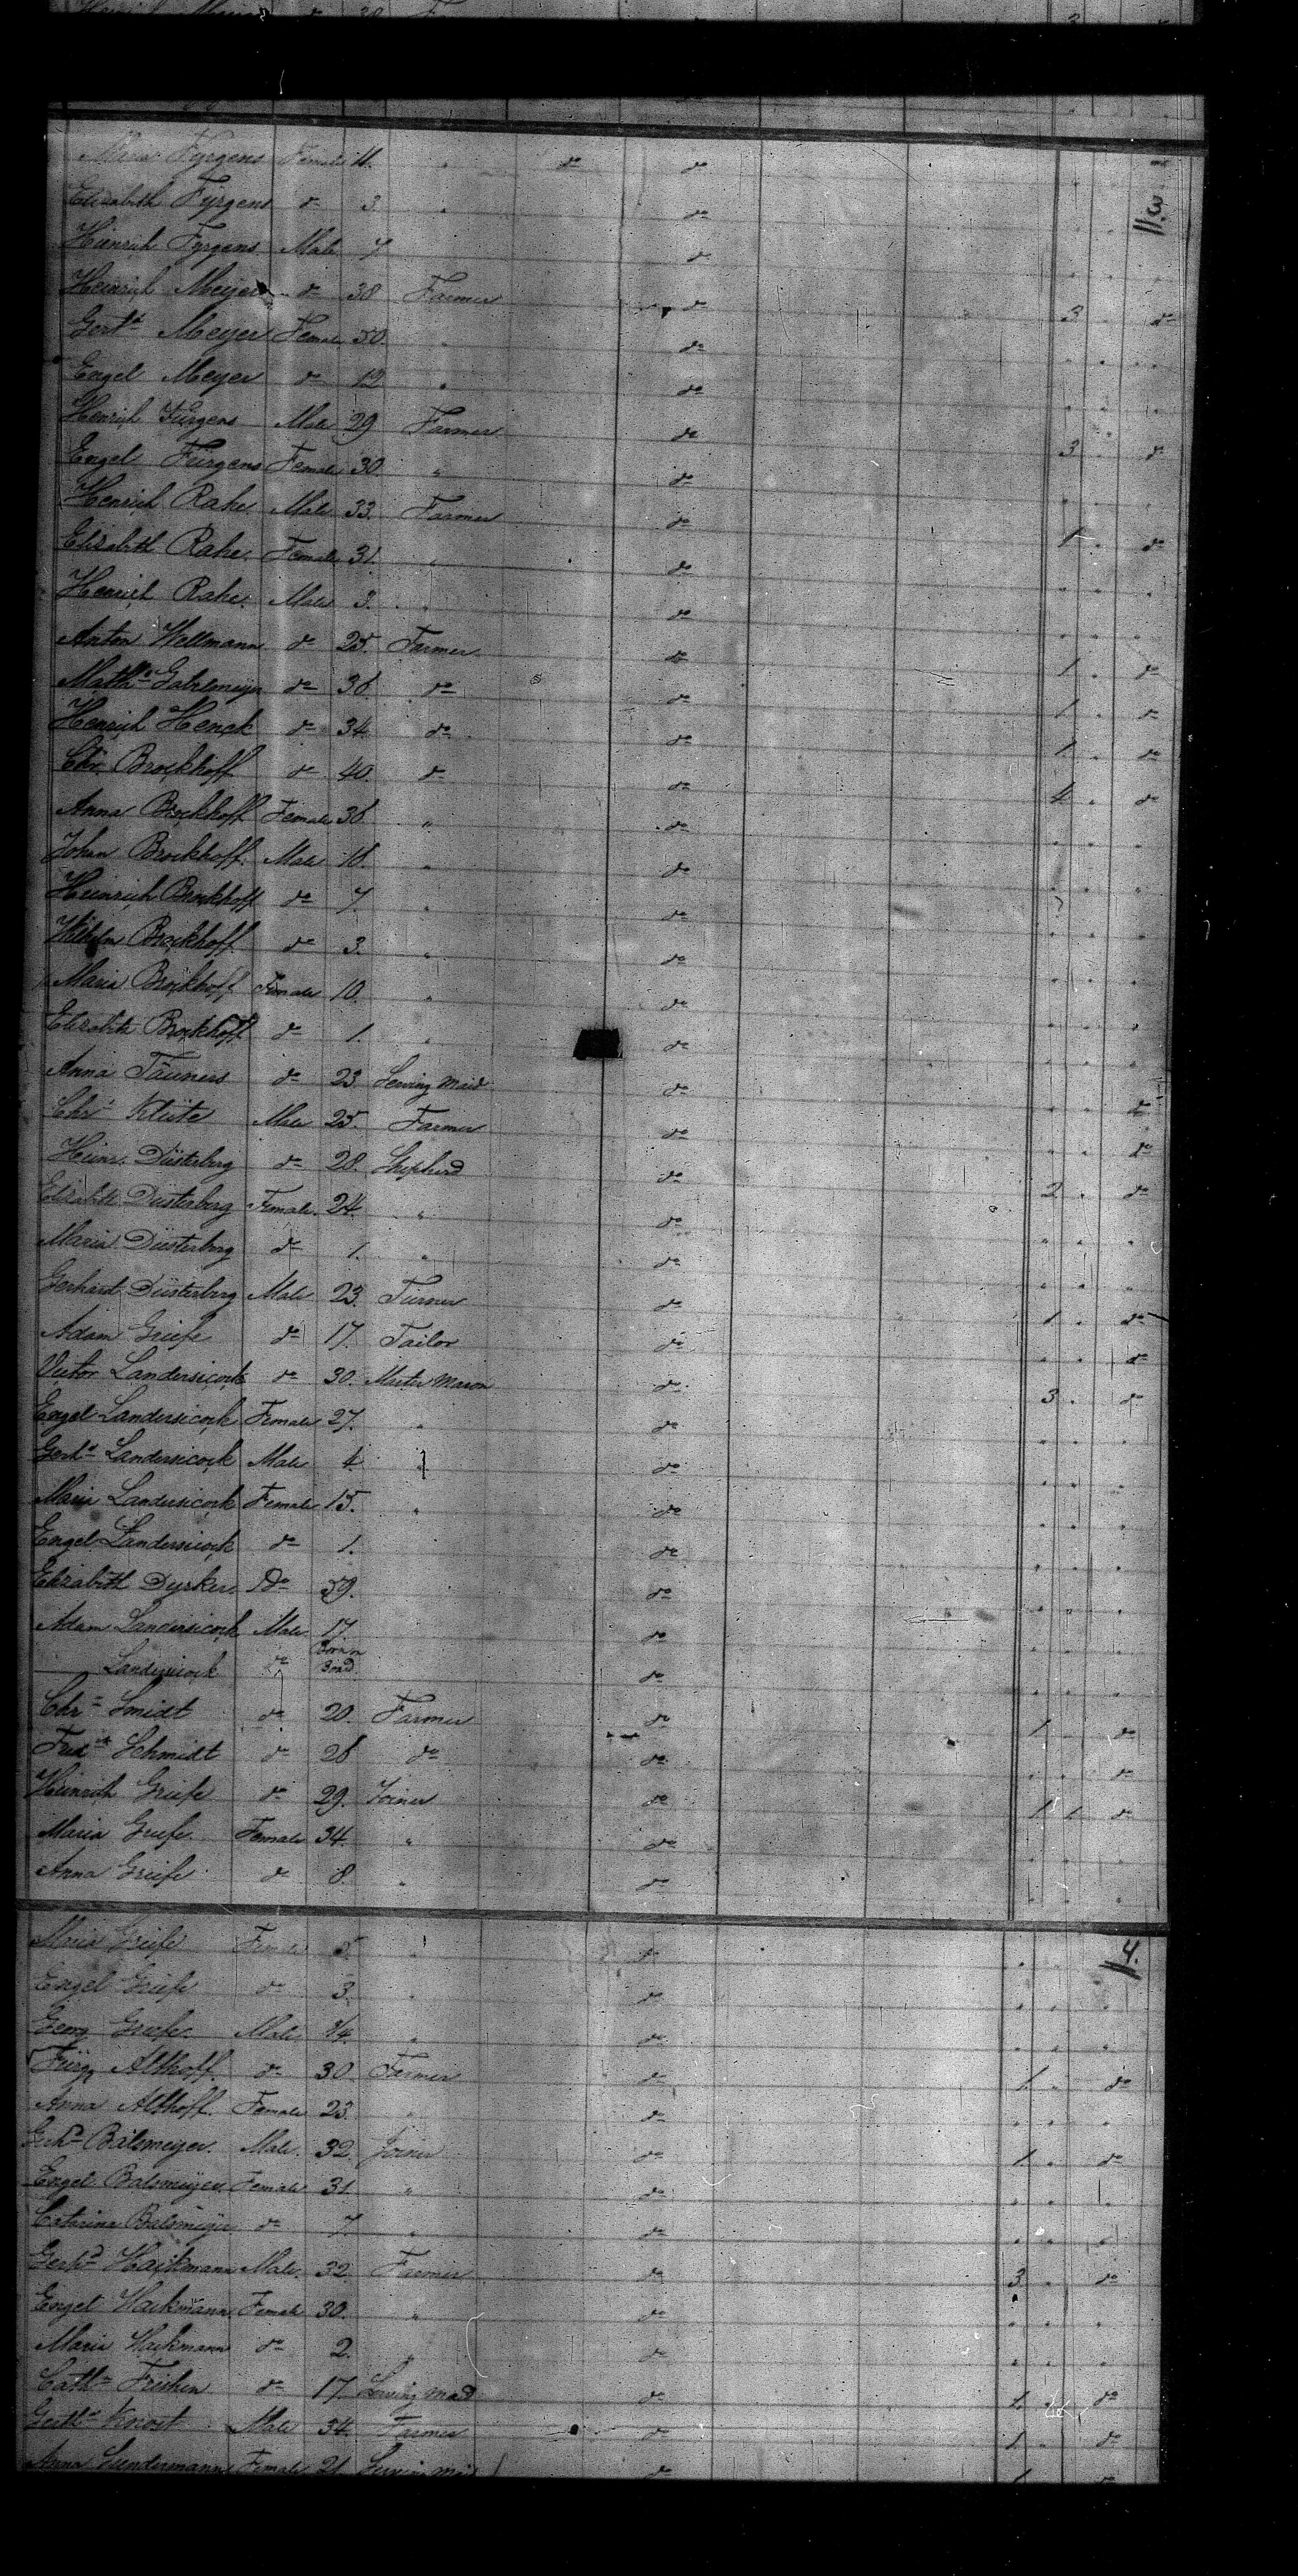 Fÿrgens Female 11. " do do
3.
Elizabith Fÿrgens do 3. " do
Heinrich Fÿrgens Male 7 do
Heinrich Meijer do 38 Farmer do 3 . do
Gertd Meijer Female 30. " do
Engel Meyer do 12 " do
Henrich Fürgens Male 29 Farmer do 3 do
Engel Fürgens Female 30. " do
Henrich Rahe Male 33. Farmer do 1 . do
Elizabith Rahe. Female 31. " do
Henrich Rahe. Male 3. " do
Anton Wellmann do 25. Farmer. do 1 . do
do 36. do do 1 . do
Henrich Henck do 34. do do 1. . do
Chr. Brockhoff do 40. do do 4 . do
Anna Brockhoff Female 36. " do
Johan Brockhoff. Male 18. " do
Heinrich Brockhoff do 7. " do
Wilhelm Brockhoff. do 3. " do
Maria Brockhoff Female 10. " do
Elizabith Brockhoff do 1. " do
Anna do 23. Serving Maid do do
Chrs Klüte Male 25. Farmer do do
Heinr. Düsterberg do 28. Shepherd do 2 . do
Elizabith Düsterberg Female. 24. " do
Maria Düsterberg do 1. " do
Gerhard Düsterberg Male 23. Turner do 1. . do
Adam Griefe do 17. Tailor do do
Victor Landersicock do 30. Master Mason do 3. do
Engel Landersicock Female 27. " do
Gerhd Landersicock Male 4. " do
Maria Landersicock Female 15. " do
Engel Landersicock do 1. do
Elizabith Dyrker Do 59. do
Adam Landersicock Male 17 do
Landersicock do Born on Board do
Chr Smidt do 20. Farmer do 1. do
Fredk Schmidt do 26 do do do
Heinrich Griefe do 29. Joiner do 1 1 do
Maria Griefe. Female 34. " do
Anna Griefe do 8. " do
Maria Griefe Female 5. " do
4.
Engel Griefe do 3. " do
Georg Griefe. Male 3/4. " do
Fürg Althoff. do 30. Farmer do 1. . do
Anna Althoff. Female 23. " do
Balsmeyer. Male. 32. Joiner do 1. . do
Engel Balsmeyer Female 31. " do
Catarina Balsmeyer do 7. " do
Gerhd Hackmann Male. 32. Farmer do 3. . do
Engel Hackmann Female 30. " do
Maria Hackmann do 2. " do
Cath do 17. Serving Maid do 1. . do
Male 34. Farmer do 1. . do
Anna Sundermann Female 21. Serving Maid do 1 do